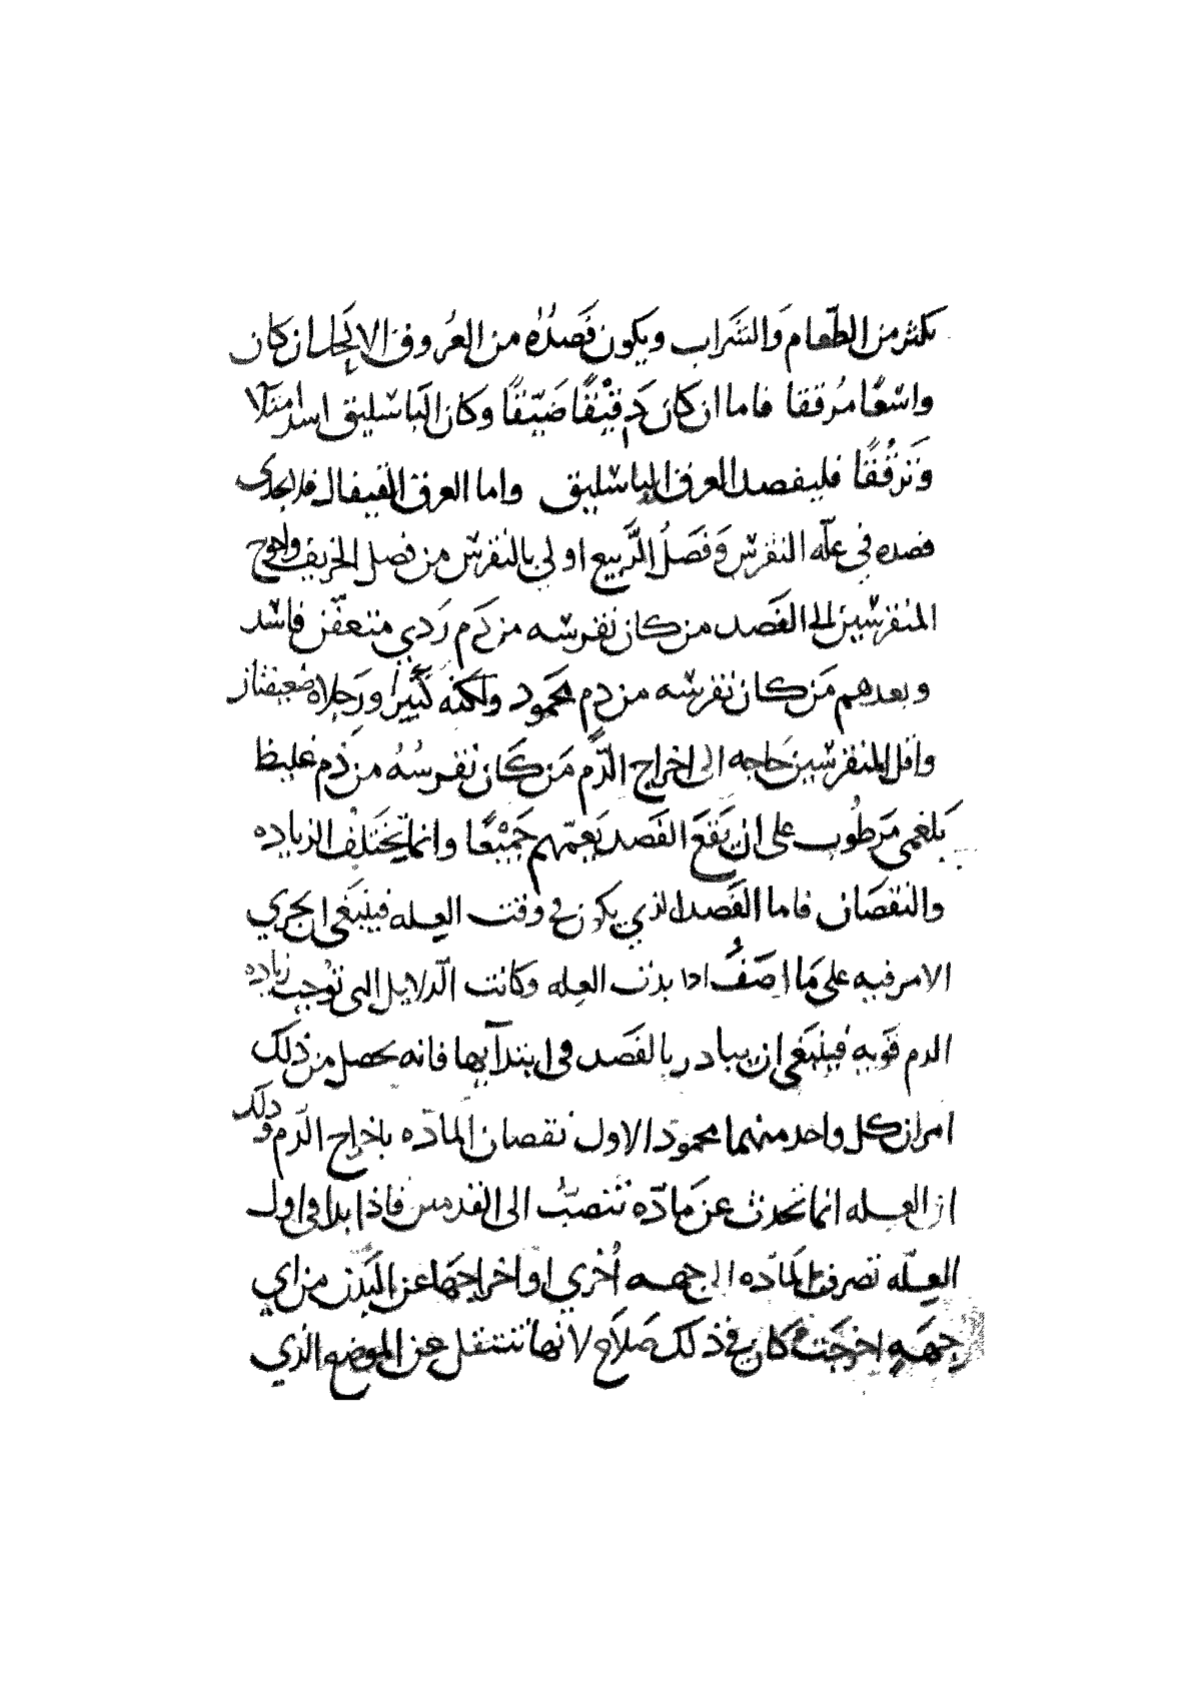 يكثر من الطّعام وَالشَراب ويَكون فَصدُهُ من العُروق الاكحَل ان كان
واسْعًا مُرققا فاما ان كان دَقيْقًا ضَيّقًا وكان البَاسْليق اسد امتلآ
فليفصد العرق الباسْليق واما العرق القيفال فلا يجدى
فصده في علّه النقرسْ وَفصَلُ الرَّبيع اولي بالنقرسْ من فصل الخريف واحوج
المنقرسْين الى الفَصد من كان نقرسْه من دَم رَدي متعفّن فاسْد
وبعدهم مَن كان نقرسْه من دمٍ محَمود ولكنه كثَيرا ورَجلاه ضعيفتان
واقل المنقرسْين حَاجه الى اخراج الدّم مَن كَان نقرسُهُ من دَم غليظ
بَلغمى مَرطُوب على ان يَقعَ الفَصد يَعمّهم جَميْعًا وانما يختَلْف الزياده
والنقصَان فاما الفَصد الذي يكون في وقت العله فينبَغى ان يجري
الامر فيه على مَا اصَفُ اذا بدت العله وكانت الّدلايل التى توْجب زياده
الدم قَويه فينبَغى ان يبادر بالفَصد في ابتدآيها فانه يحصل من ذلَك
امران كل واحد منهما محمودَ الاول نقصان المادّه باخراج الدَم وذلك
ان العله انما تحدث عن مَادّه تنصَبُّ الى القدمين فاذا بدا في اول
العلّه تصرفت المادّه الى جهه أُخري او اخراجهَا عن البَدن من اي
جهَهٍ اخرجَت كان في ذلك صَلاَح لانها تنتقل عن الموضع الذي